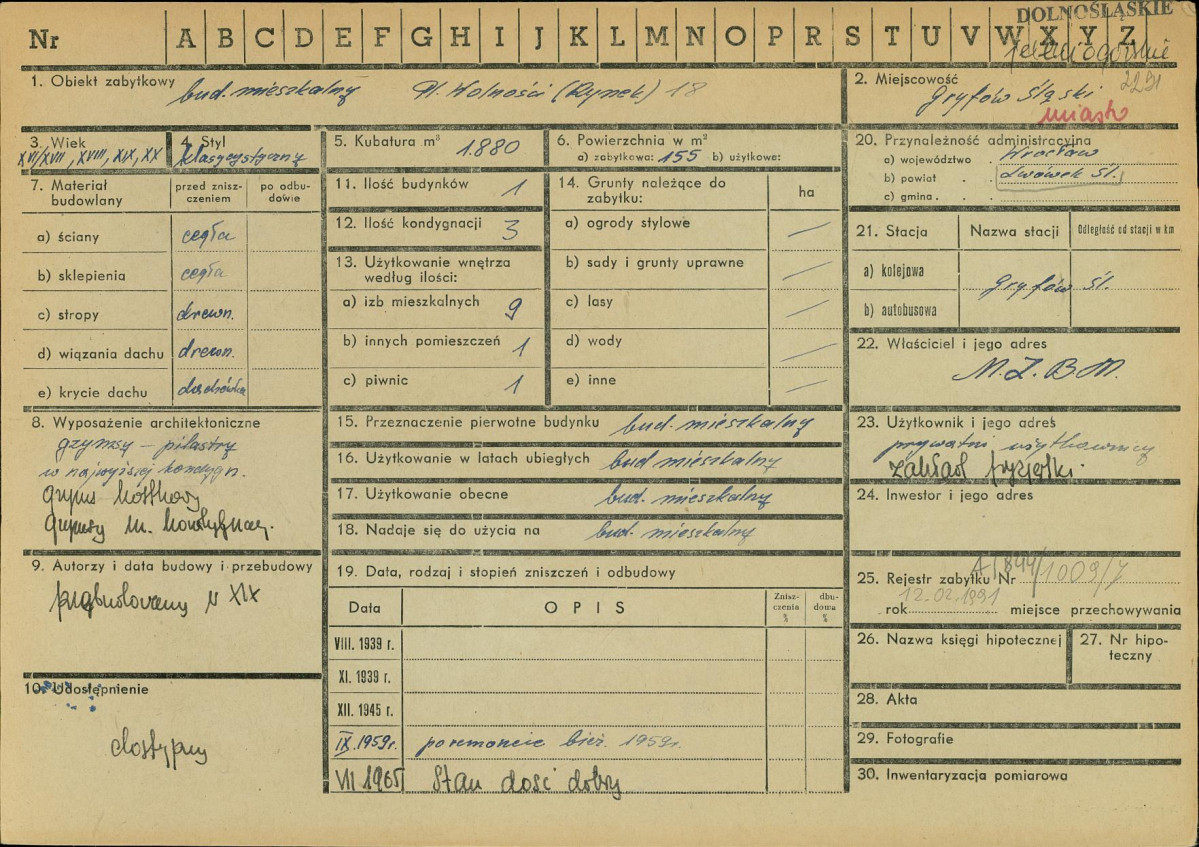 DOLNOŚLĄSKIE
Nr A B C D E F G H I J K L M N O P R S T U V W X Y Z
jeleniogórskie
2291
1. Obiekt zabytkowy bud. mieszkalny Pl. Wolności (Rynek) 18
2. Miejscowość
Gryfów Śląski
miasto
3. Wiek
XVII/XVIII, XVIII, XIX, XX
4. Styl
klasycystyczny
5. Kubatura m³ 1.880
6. Powierzchnia w m²
a) zabytkowa: 155 b) użytkowe:
7. Materiał budowlany
przed zniszczeniem
po odbudowie
a) ściany cegła
b) sklepienia cegła
c) stropy drewn.
d) wiązania dachu drewn.
e) krycie dachu dachówka
8. Wyposażenie architektoniczne
gzymsy - pilastry
w najwyższej kondygn.
9. Autorzy i data budowy i przebudowy
przebudowany w XIX
10. Udostępnienie
dostępny
11. Ilość budynków 1
12. Ilość kondygnacji 3
13. Użytkowanie wnętrza
według ilości:
a) izb mieszkalnych 9
b) innych pomieszczeń 1
c) piwnic 1
14. Grunty należące do
zabytku:
ha
a) ogrody stylowe —
b) sady i grunty uprawne —
c) lasy —
d) wody —
e) inne —
15. Przeznaczenie pierwotne budynku bud. mieszkalny
16. Użytkowanie w latach ubiegłych bud mieszkalny
17. Użytkowanie obecne bud. mieszkalny
18. Nadaje się do użycia na bud. mieszkalny
19. Data, rodzaj i stopień zniszczeń i odbudowy
Data OPIS Zniszczenia % dbudowa %
VIII. 1939 r.
XI. 1939 r.
XII. 1945 r.
IX.1959r. po remoncie bież. 1959r.
VII 1965 Stan dość dobry
20. Przynależność administracyjna
a) województwo . Wrocław
b) powiat . . Lwówek Śl.
c) gmina . .
21. Stacja Nazwa stacji Odległość od stacji w km
a) kolejowa
Gryfów Śl.
b) autobusowa
22. Właściciel i jego adres
M.Z.B.M.
23. Użytkownik i jego adres
prywatni użytkownicy
zakład fryzjerski.
24. Inwestor i jego adres
25. Rejestr zabytku Nr A/844/1009/J
12.02.1991
rok miejsce przechowywania
26. Nazwa księgi hipotecznej
27. Nr hipoteczny
28. Akta
29. Fotografie
30. Inwentaryzacja pomiarowa